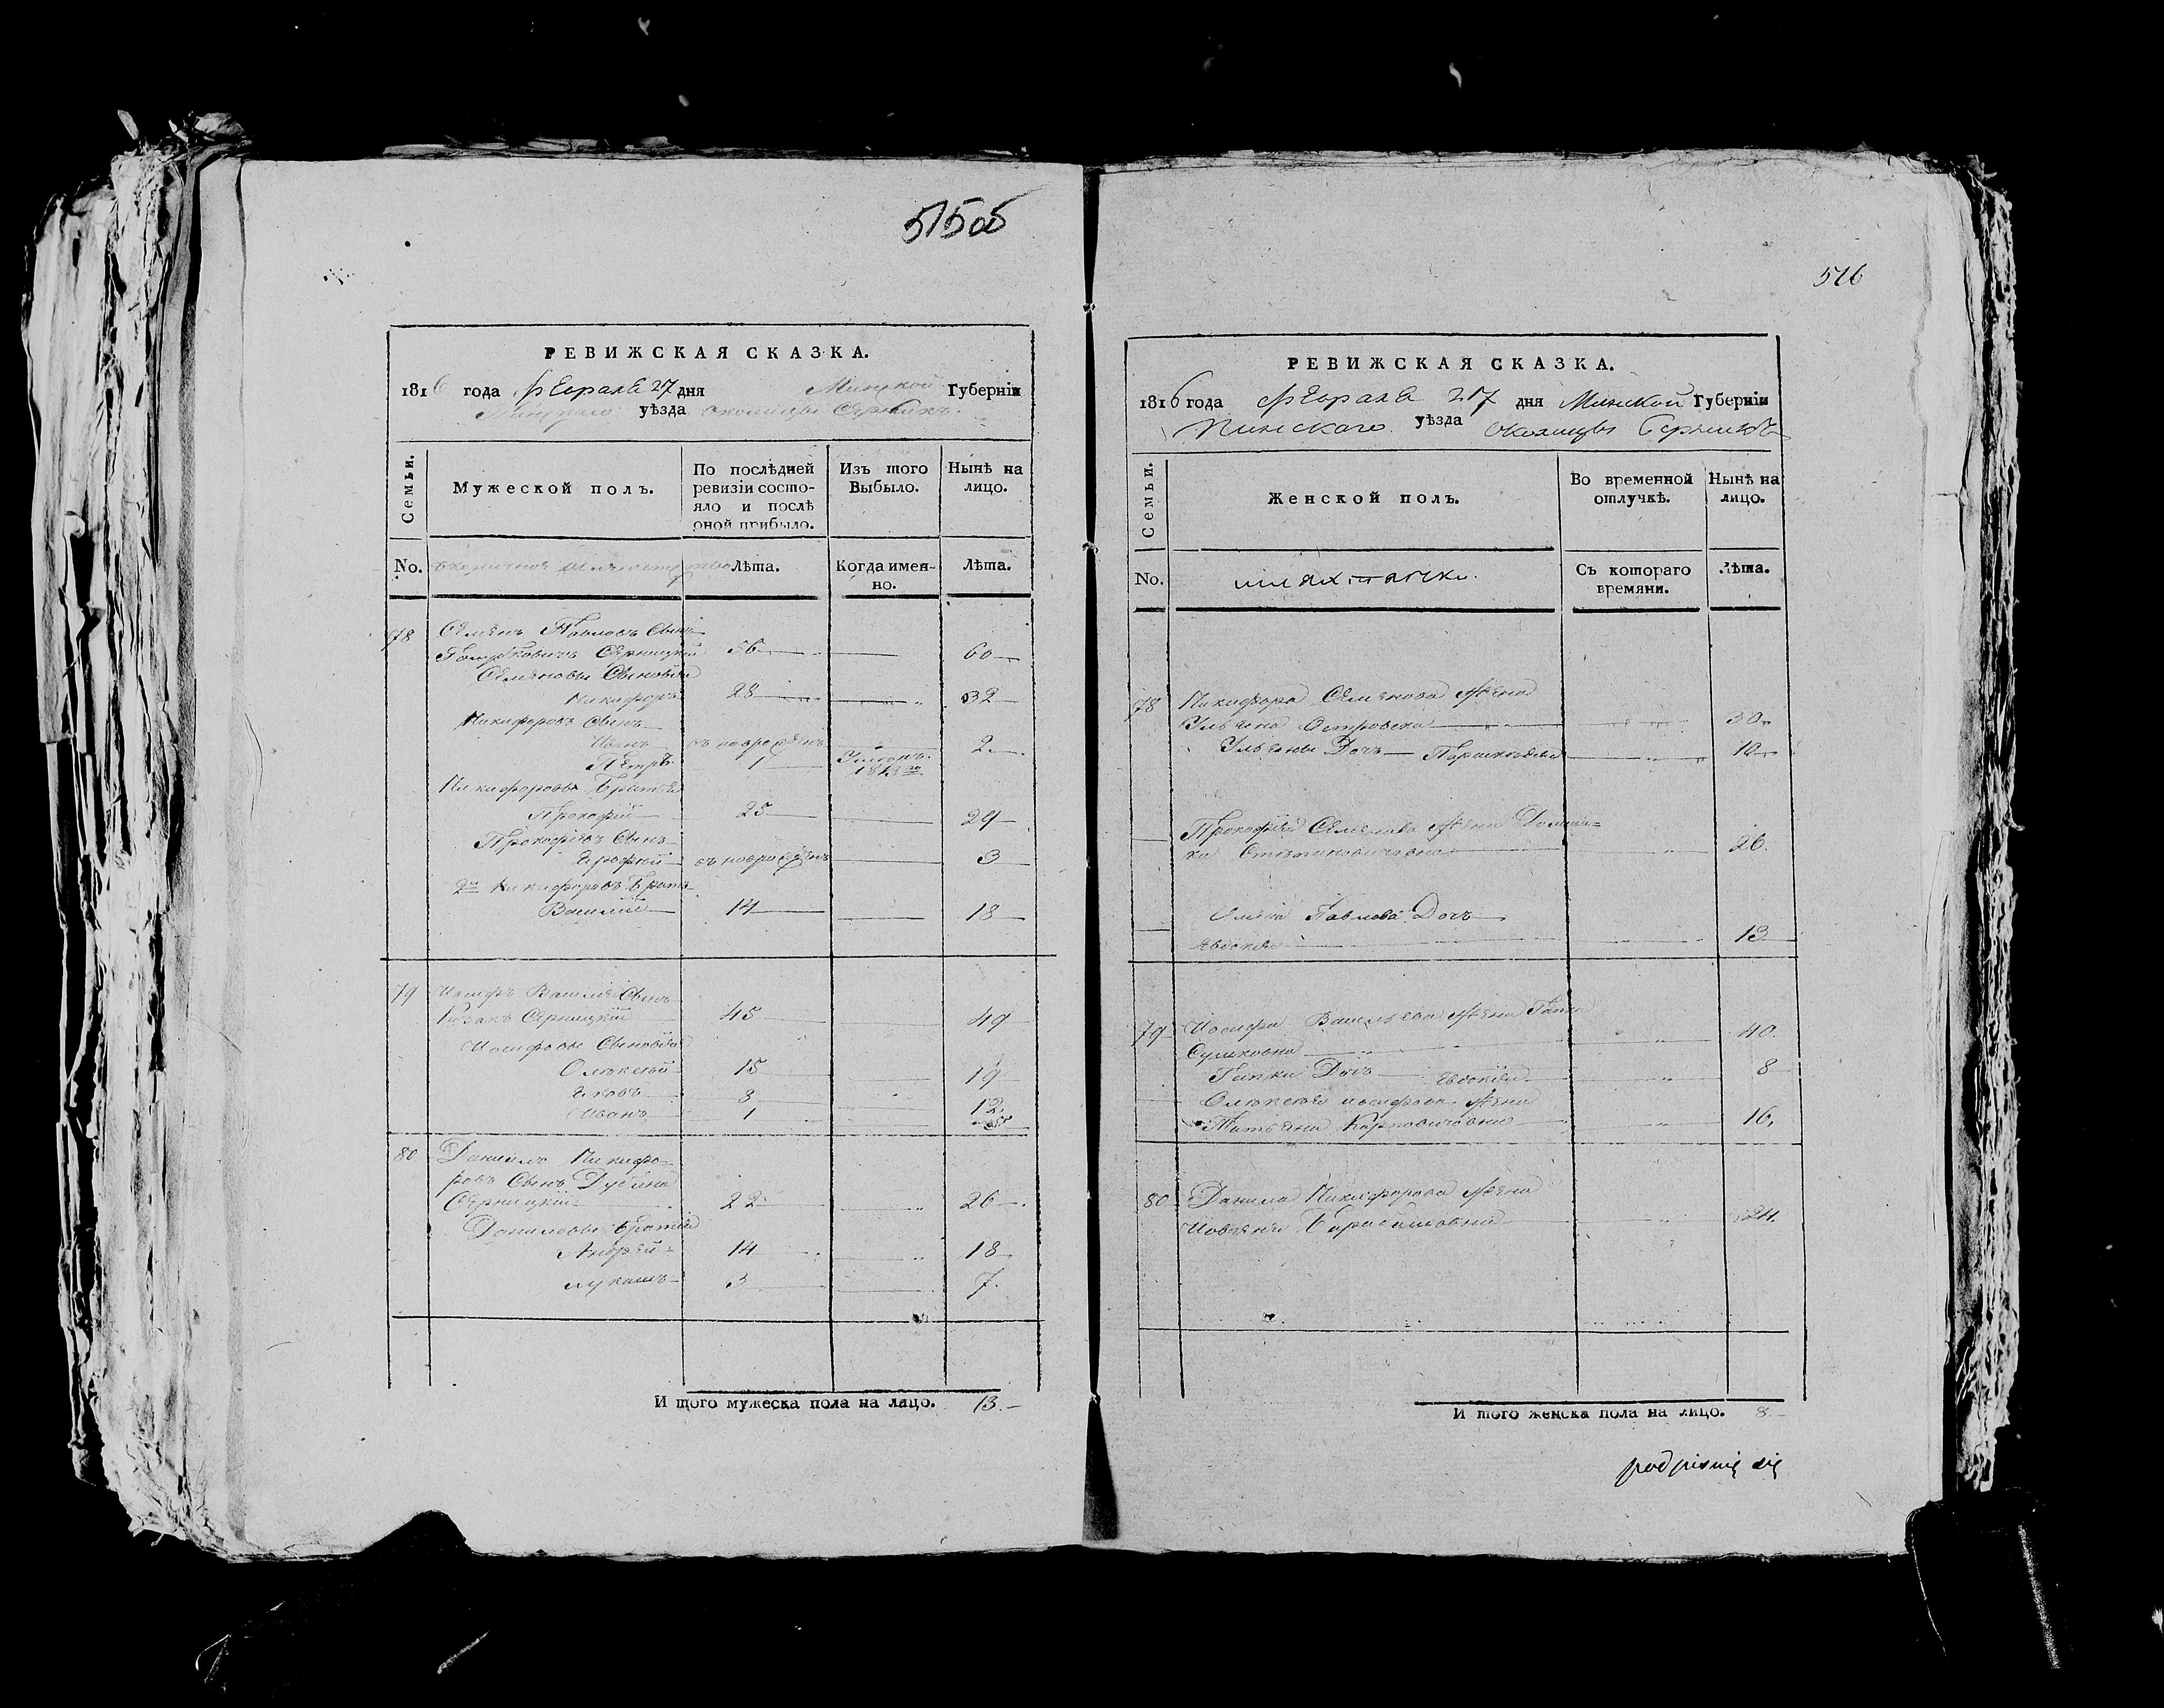 515об
РЕВИЖСКАЯ СКАЗКА.
1816 года Февраля 27 дня Минской Губерніи
Пинскаго уѣзда околицы Серникъ
Семьи.
Мужеской полъ.
По послѣдней ревизіи состояло и послѣ оной прибыло.
Изъ того Выбыло.
Нынѣ на лицо.
No.
Лѣта.
Когда именно.
Лѣта.
78 Семенъ Павловъ Сынъ
Серницкій 56 60
Семеновы Сыновья
Никифоръ 28 32
Никифоровъ Сынъ
Иванъ въ новорожденъ 2
Петръ 1
Никифоровы Братья
Прокофій 25 29
Прокофіевъ Сынъ
въ новорожденъ 3
2й Никифоровъ Братъ
Василій 14 18
79 Иосифъ Василіевъ Сынъ
Козакъ Серницкій 45 49
Иосифовы Сыновья
Олексѣй 15 19
Яковъ 8 12
Иванъ 1
80 Данило Никифо-
ровъ Сынъ Дубина
Серницкій 22 26
Даниловы Братья
Андрей 14 18
Лукашъ 3 7
И того мужеска пола на лицо. 13.
516
РЕВИЖСКАЯ СКАЗКА.
1816 года Февраля 27 дня Минской Губерніи
Пинскаго уѣзда околицы Серникъ
Семьи.
Женской полъ.
Во временной отлучкѣ.
Нынѣ на лицо.
No.
шляхтянки.
Съ котораго времяни.
Лѣта.
78 Никифора Семенова Жена
Ульяна Островска 30
Ульяны Дочь Параскевія 10
Прокофія Семенова Жена Домни-
ка 26.
Павлова Дочь
Евдокія 13
79 Иосифа Васильева Жена Гапка
40.
Гапки Дочь Евдокія 8
Олексѣя Иосифова Жена
Татьяна Карповичовна 16.
80 Данила Никифорова Жена
24.
И того женска пола на лицо. 8.
podpisuię się